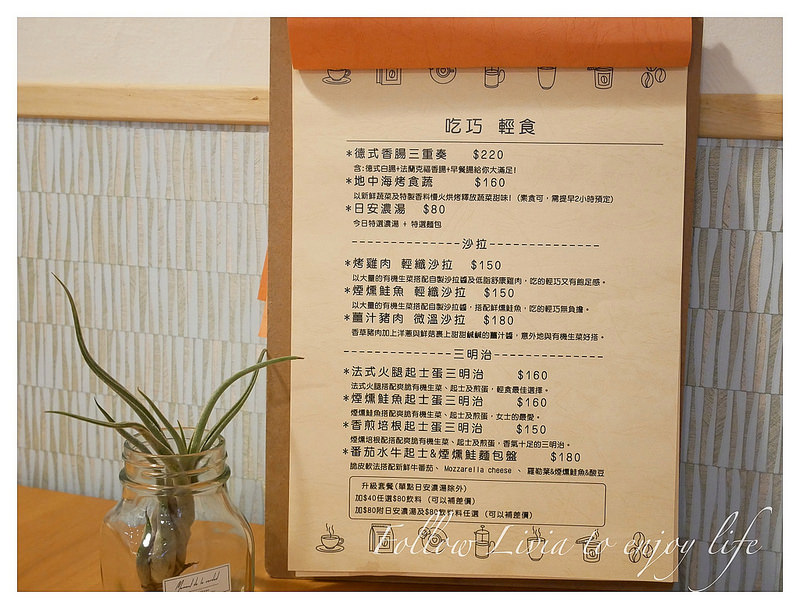 吃巧 輕食
*德式香腸三重奏 $220
含:德式白腸+法蘭克福香腸+早餐腸給你大滿足!
*地中海烤食蔬 $160
以新鮮蔬菜及特製香料慢火烘烤釋放蔬菜甜味!(素食可,需提早2小時預定)
*日安濃湯 $80
今日特選濃湯 + 特選麵包
沙拉
*烤雞肉 輕纖沙拉 $150
以大量的有機生菜搭配自製沙拉醬及低脂舒康雞肉,吃的輕巧又有飽足感。
*煙燻鮭魚 輕纖沙拉 $150
以大量的有機生菜搭配自製沙拉醬,搭配鮮燻鮭魚,吃的輕巧無負擔。
*薑汁豬肉 微溫沙拉 $180
香草豬肉加上洋蔥與鮮菇裹上甜甜鹹鹹的薑汁醬,意外地與有機生菜好搭。
三明治
*法式火腿起士蛋三明治 $160
法式火腿搭配爽脆有機生菜、起士及煎蛋,輕食最佳選擇。
*煙燻鮭魚起士蛋三明治 $160
煙燻鮭魚搭配爽脆有機生菜、起士及煎蛋,女士的最愛。
*香煎培根起士蛋三明治 $150
煙燻培根配搭配爽脆有機生菜、起士及煎蛋,香氣十足的三明治。
*番茄水牛起士&煙燻鮭麵包盤 $180
脆皮軟法搭配新鮮牛番茄、Mozzarella cheese 、 羅勒葉&煙燻鮭魚&酸豆
升級套餐(單點日安濃湯除外)
加$40任選$80飲料 (可以補差價)
加$80附日安濃湯及$80飲料任選 (可以補差價)
Follow Livia to enjoy life